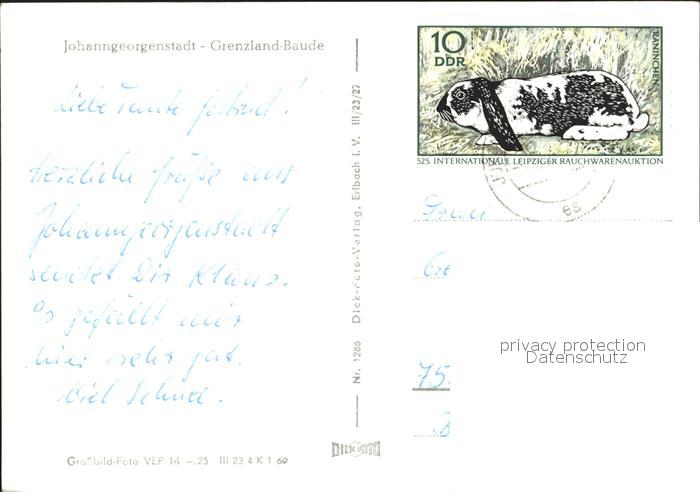 Johanngeorgenstadt - Grenzland-Baude
Liebe Tante Gertrud!
Herzliche Grüße aus
Johanngeorgenstadt
sendet Dir Klaus.
Es gefällt mir
hier sehr gut.
Viel Schnee.
Großbild-Foto VEP 14 -.25 III 23 4 K 1 69
Nr. 1286 Dick-Foto-Verlag, Erlbach i. V. III/23/27
DICK FOTO
10
DDR
KANINCHEN
525. INTERNATIONALE LEIPZIGER RAUCHWARENAUKTION
Frau
75
privacy protection
Datenschutz